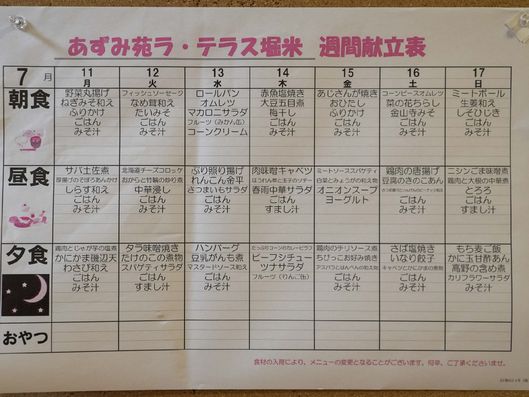 あずみ苑ラ・テラス堀米 週間献立表
7 月 11 12 13 14 15 16 17
月 火 水 木 金 土 日
朝食
野菜丸揚げ
ねぎみそ和え
ふりかけ
ごはん
みそ汁
フィッシュソーセージ
なめ茸和え
たいみそ
ごはん
みそ汁
ロールパン
オムレツ
マカロニサラダ
フルーツ(みかん缶)
コーンクリーム
赤魚塩焼き
大豆五目煮
梅干し
ごはん
みそ汁
あじさんが焼き
おひたし
ふりかけ
ごはん
みそ汁
コーンピースオムレツ
菜の花ちらし
金山寺みそ
ごはん
みそ汁
ミートボール
生姜和え
しそひじき
ごはん
みそ汁
昼食
サバ土佐煮
厚揚げのそぼろあんかけ
しらす和え
ごはん
みそ汁
北海道チーズコロッケ
おからと竹輪の炒り煮
中華浸し
ごはん
みそ汁
ぶり照り揚げ
れんこん金平
さつまいもサラダ
ごはん
みそ汁
肉味噌キャベツ
ほうれん草と玉子のソテー
春雨中華サラダ
ごはん
すまし汁
ミートソーススパゲティ
白菜とみょうがの和え物
オニオンスープ
ヨーグルト
鶏肉の唐揚げ
豆腐のきのこあん
ごはん
みそ汁
ニシンごま味煮
鶏肉と大根の中華煮
とろろ
ごはん
すまし汁
夕食
鶏肉とじゃが芋の塩煮
かにかま磯辺天
わさび和え
ごはん
みそ汁
タラ味噌焼き
たけのこの煮物
スパゲティサラダ
ごはん
すまし汁
ハンバーグ
豆乳がんも煮
マスタードソース和え
ごはん
みそ汁
たっぷりコーンのカレーピラフ
ビーフシチュー
ツナサラダ
フルーツ(りんご缶)
鶏肉のチリソース煮
ちびっこお好み焼き
アスパラとはんぺんの和え物
ごはん
みそ汁
さば塩焼き
いなり餃子
キャベツとかにかまの煮物
ごはん
みそ汁
もち麦ご飯
かに玉甘酢あん
高野の含め煮
カリフラワーサラダ
みそ汁
おやつ
食材の入荷により、メニューの変更となることがございます。何卒、ご了承くださいませ。